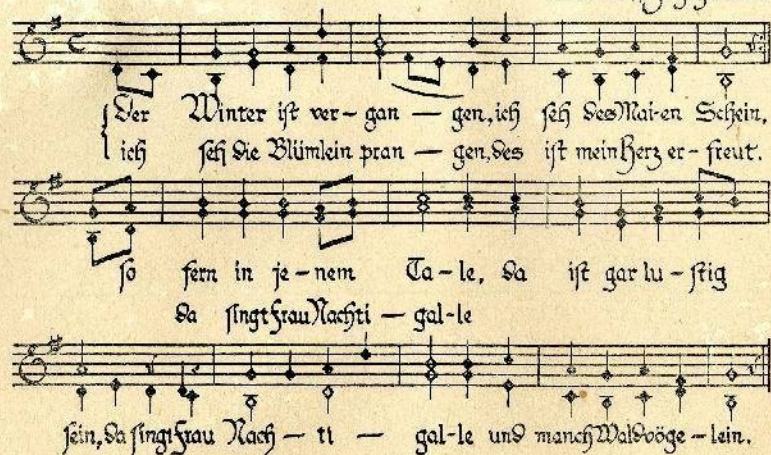 Der Winter ist ver- gan - gen, ich seh des Mai-en Schein,
ich seh die Blümlein pran - gen, des ist mein Herz er- freut.
so fern in je - nem Ta - le, da ist gar lu - stig
da singt Frau Nachti - gal-le
sein, da singt Frau Nach - ti - gal-le und manch Waldvöge - lein.